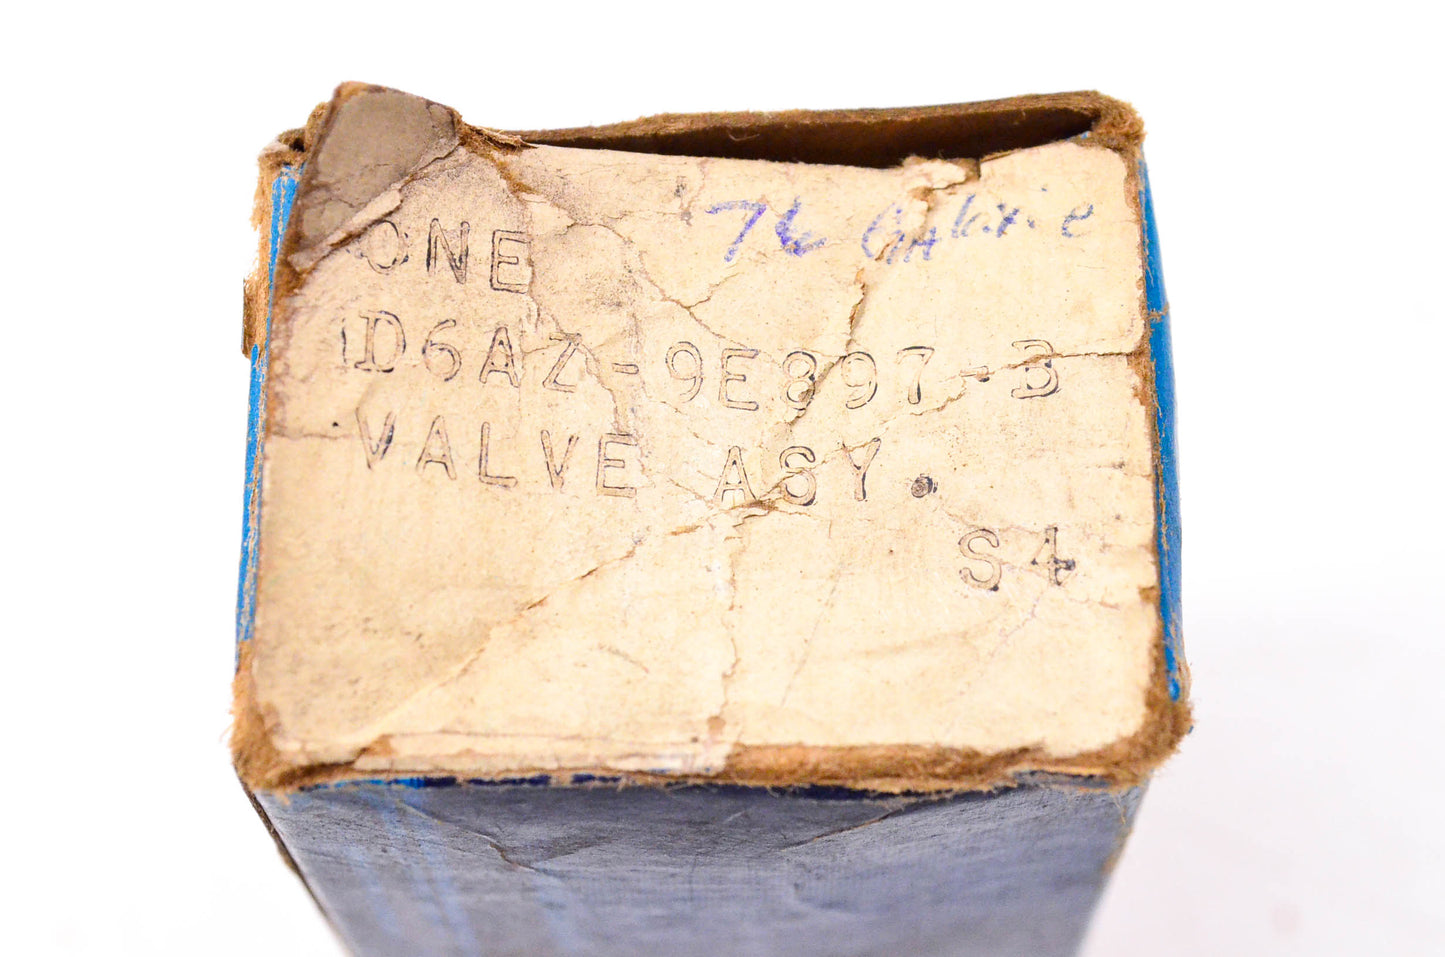 76 GAlaxie
ONE
D6AZ-9E897-B
VALVE ASY.
S4